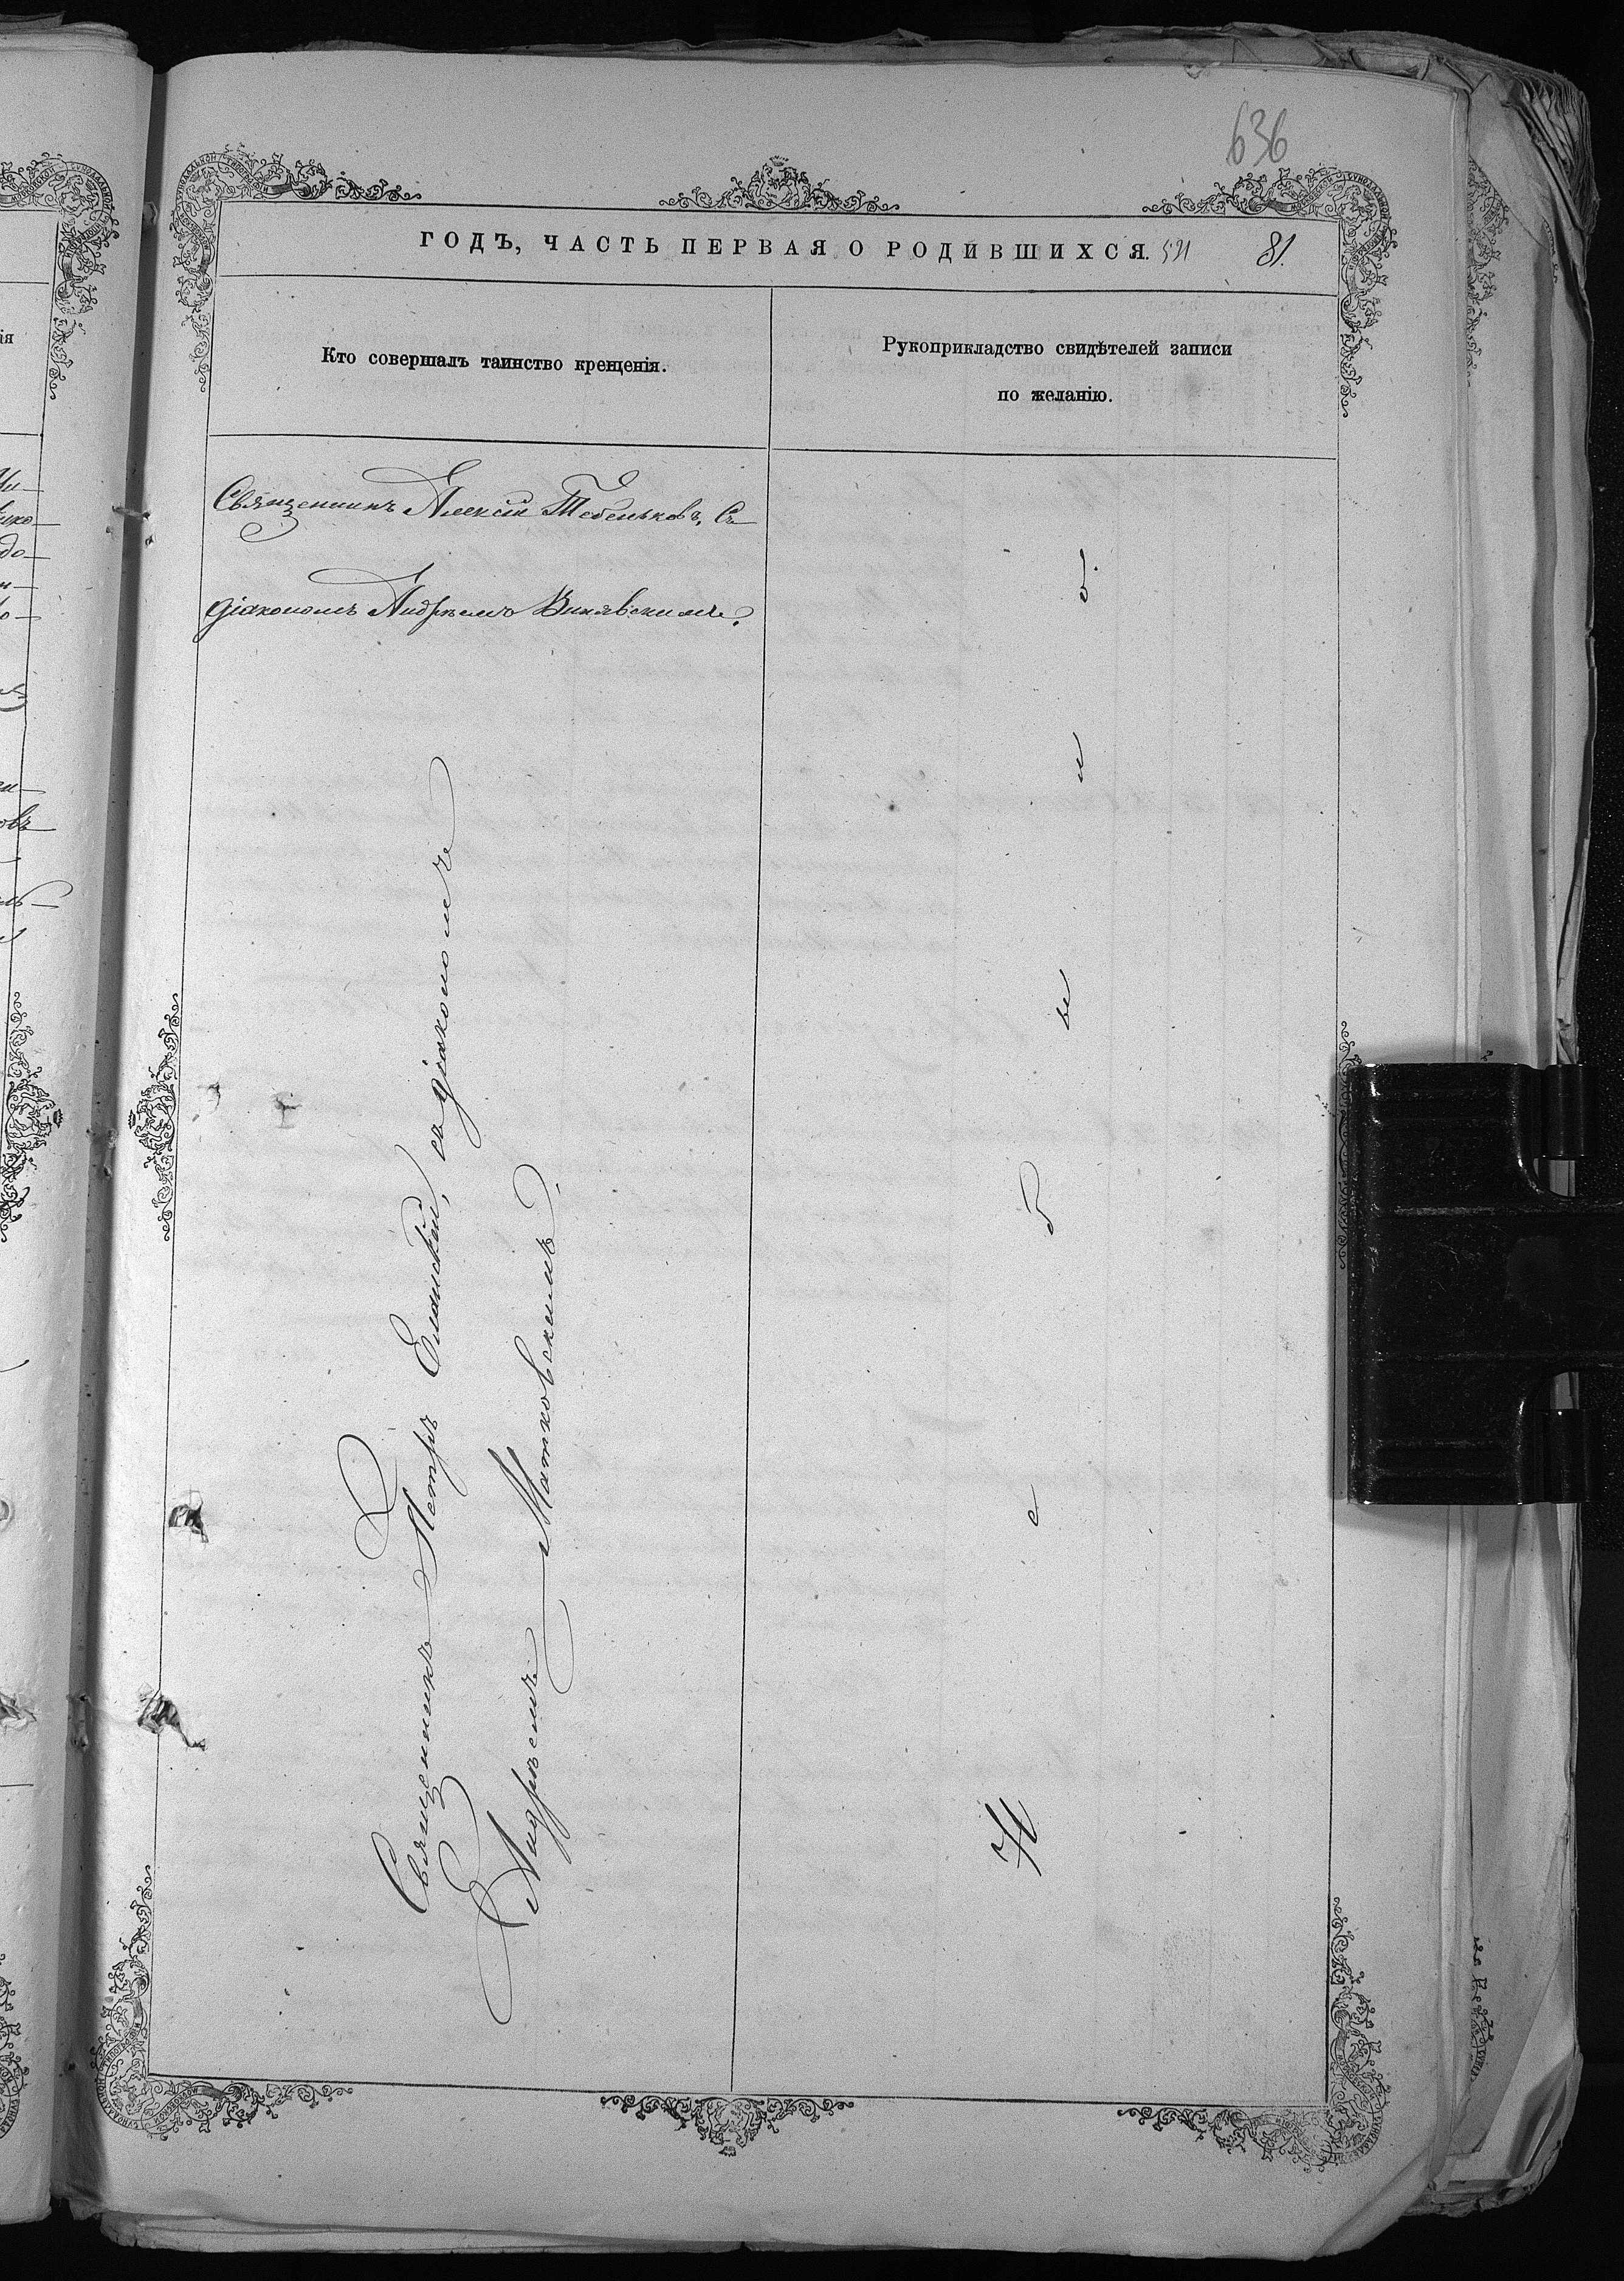 636
ГОДЪ, ЧАСТЬ ПЕРВАЯ О РОДИВШИХСЯ. 521 81.
Кто совершалъ таинство крещенія.
Рукоприкладство свидѣтелей записи
по желанію.
Священникъ Алексій Тебеньковъ, съ
діакономъ Андреемъ
Священникъ Петръ Еланскій, съ діакономъ
Андреемъ Матковскимъ.
Не было.